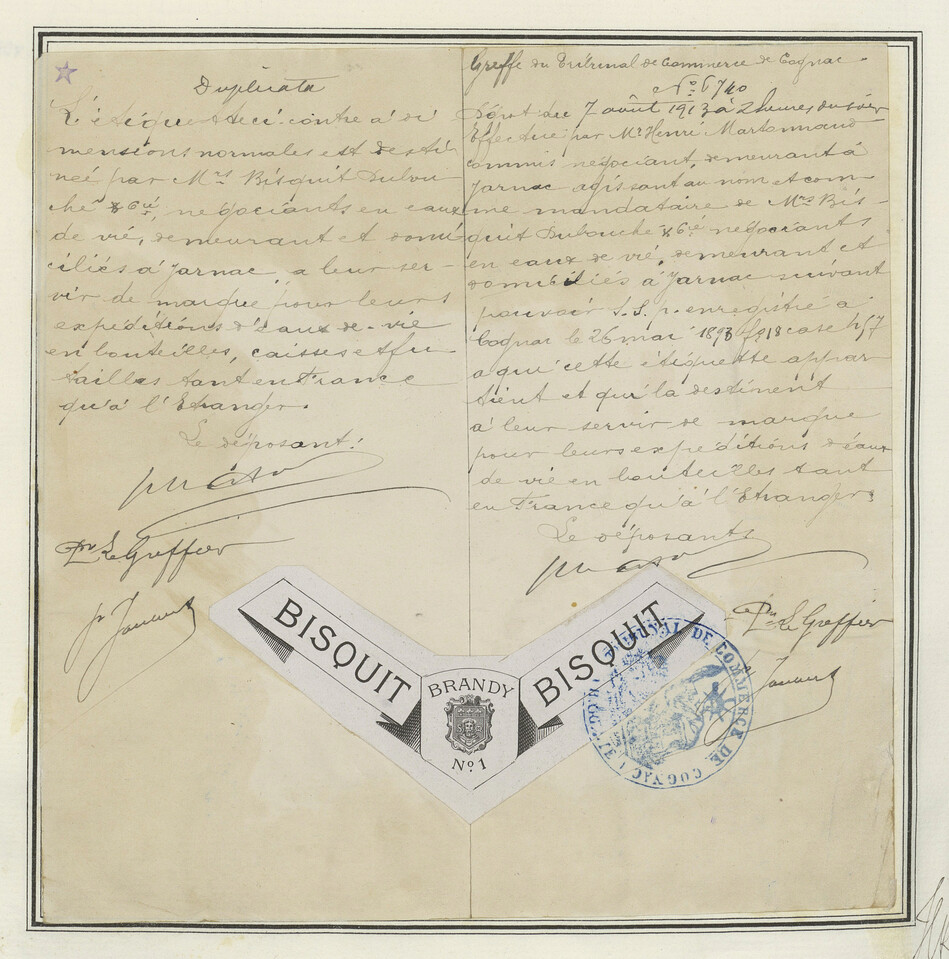 Duplicata
L'étiquette ci-contre à di
mensions normales est desti
née par Mrs Bisquit Dubou
ché & Cie, négociants en eaux
de vie, demeurant et domi
ciliés à Jarnac, a leur ser-
vir de marque pour leurs
expéditions d'eaux-de-vie
en bouteilles, caisses et fu
tailles tant en France
qu'à l'Etranger.
Le déposant:
Pr Le Greffier
Greffe du Tribunal de Commerce de Cognac
No 6740
Dépôt du 7 août 1913 à 2 heures du soir
Effectué par Mr Henri
commis négociant, demeurant à
Jarnac agissant au nom et com
me mandataire de Mrs Bis-
quit Dubouché & Cie négociants
en eaux de vie, demeurant et
domiciliés à Jarnac suivant
pouvoir s.s.p. enregistré à
Cognac le 26 mai fo 18 case
a qui cette étiquette appar
tient et qui la destinent
à leur servir de marque
pour leurs expéditions d'eaux
de vie en bouteilles tant
en France qu'à l'Etranger.
Le déposants
Pr Le Greffier
BISQUIT
BRANDY
No 1
BISQUIT
TRIBUNAL DE COMMERCE DE COGNAC